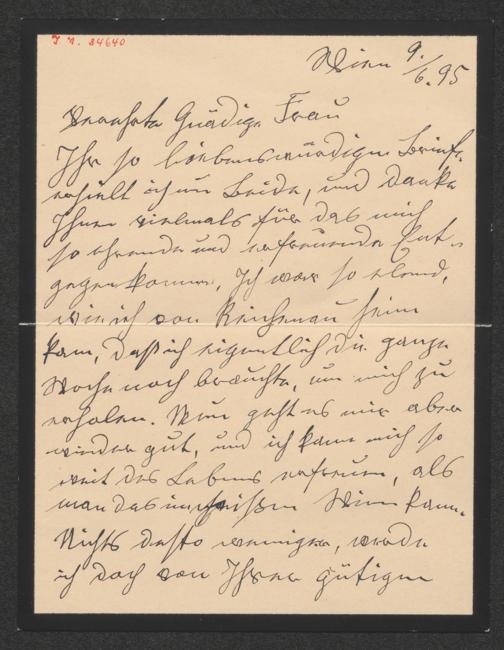 I. N. 84640
Wien 9./6. 95
Verehrte Gnädige Frau
Ihr so liebenswürdigen Briefe
erhielt ich Beide, und danke
Ihnen vielmals für das mich
so ehrende und erfreuende Ent-
gegenkommen. Ich war so elend,
wie ich von Reichenau heim
kam, daß ich eigentlich die ganze
Woche noch brauchte, um mich zu
erholen. Nun geht es mir aber
wieder gut, und ich kann mich so
weit des Lebens erfreuen, als
man das im heißen Wien kann.
Nichts desto weniger, werde
ich doch von Ihrer gütigen